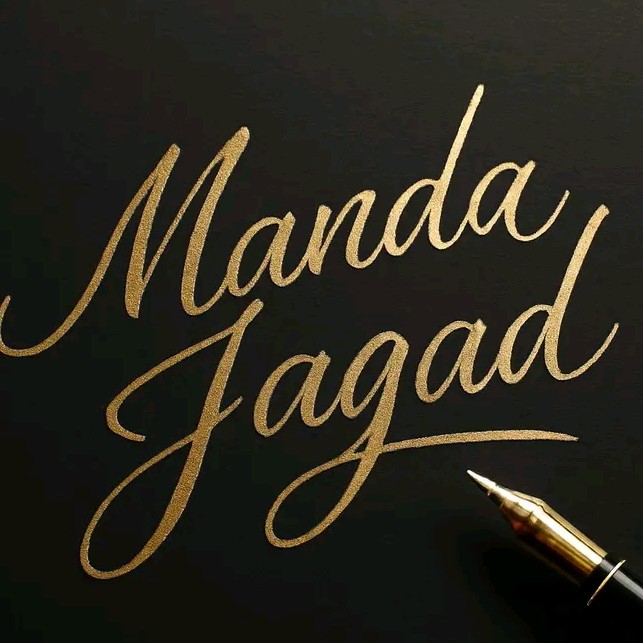 Manda
Jagad